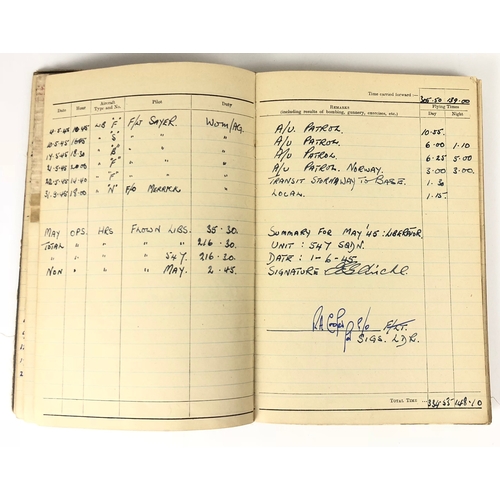 Date Hour Aircraft Type and No. Pilot Duty
4-5-45 LIB "F" F/LT SAYER. WOM/AG.
10-5-45 " "S" " "
" "B" " "
" "F" " "
22-5-45 14.40 " "F" " "
" "N" F/O MERRICK "
MAY OPS. HRS FLOWN LIBS. 35.30.
TOTAL " " " 216.30.
" " " 547. 216.20
NON " " MAY. 2.45.
Time carried forward:— 305.50 139.00
REMARKS
(including results of bombing, gunnery, exercises, etc.)
Flying Times
Day Night
A/U PATROL 10.55.
A/U PATROL. 6.00 1.10
A/U PATROL. 6.25 5.00
A/U PATROL. NORWAY. 3.00 3.00.
TRANSIT STORNAWAY TO BASE. 1.30
LOCAL. 1.15.
SUMMARY FOR MAY '45: LIBERATOR.
UNIT: 547 SQDN.
DATE: 1-6-45.
SIGNATURE
F/LT.
SIGS. LDR.
TOTAL TIME 148.10